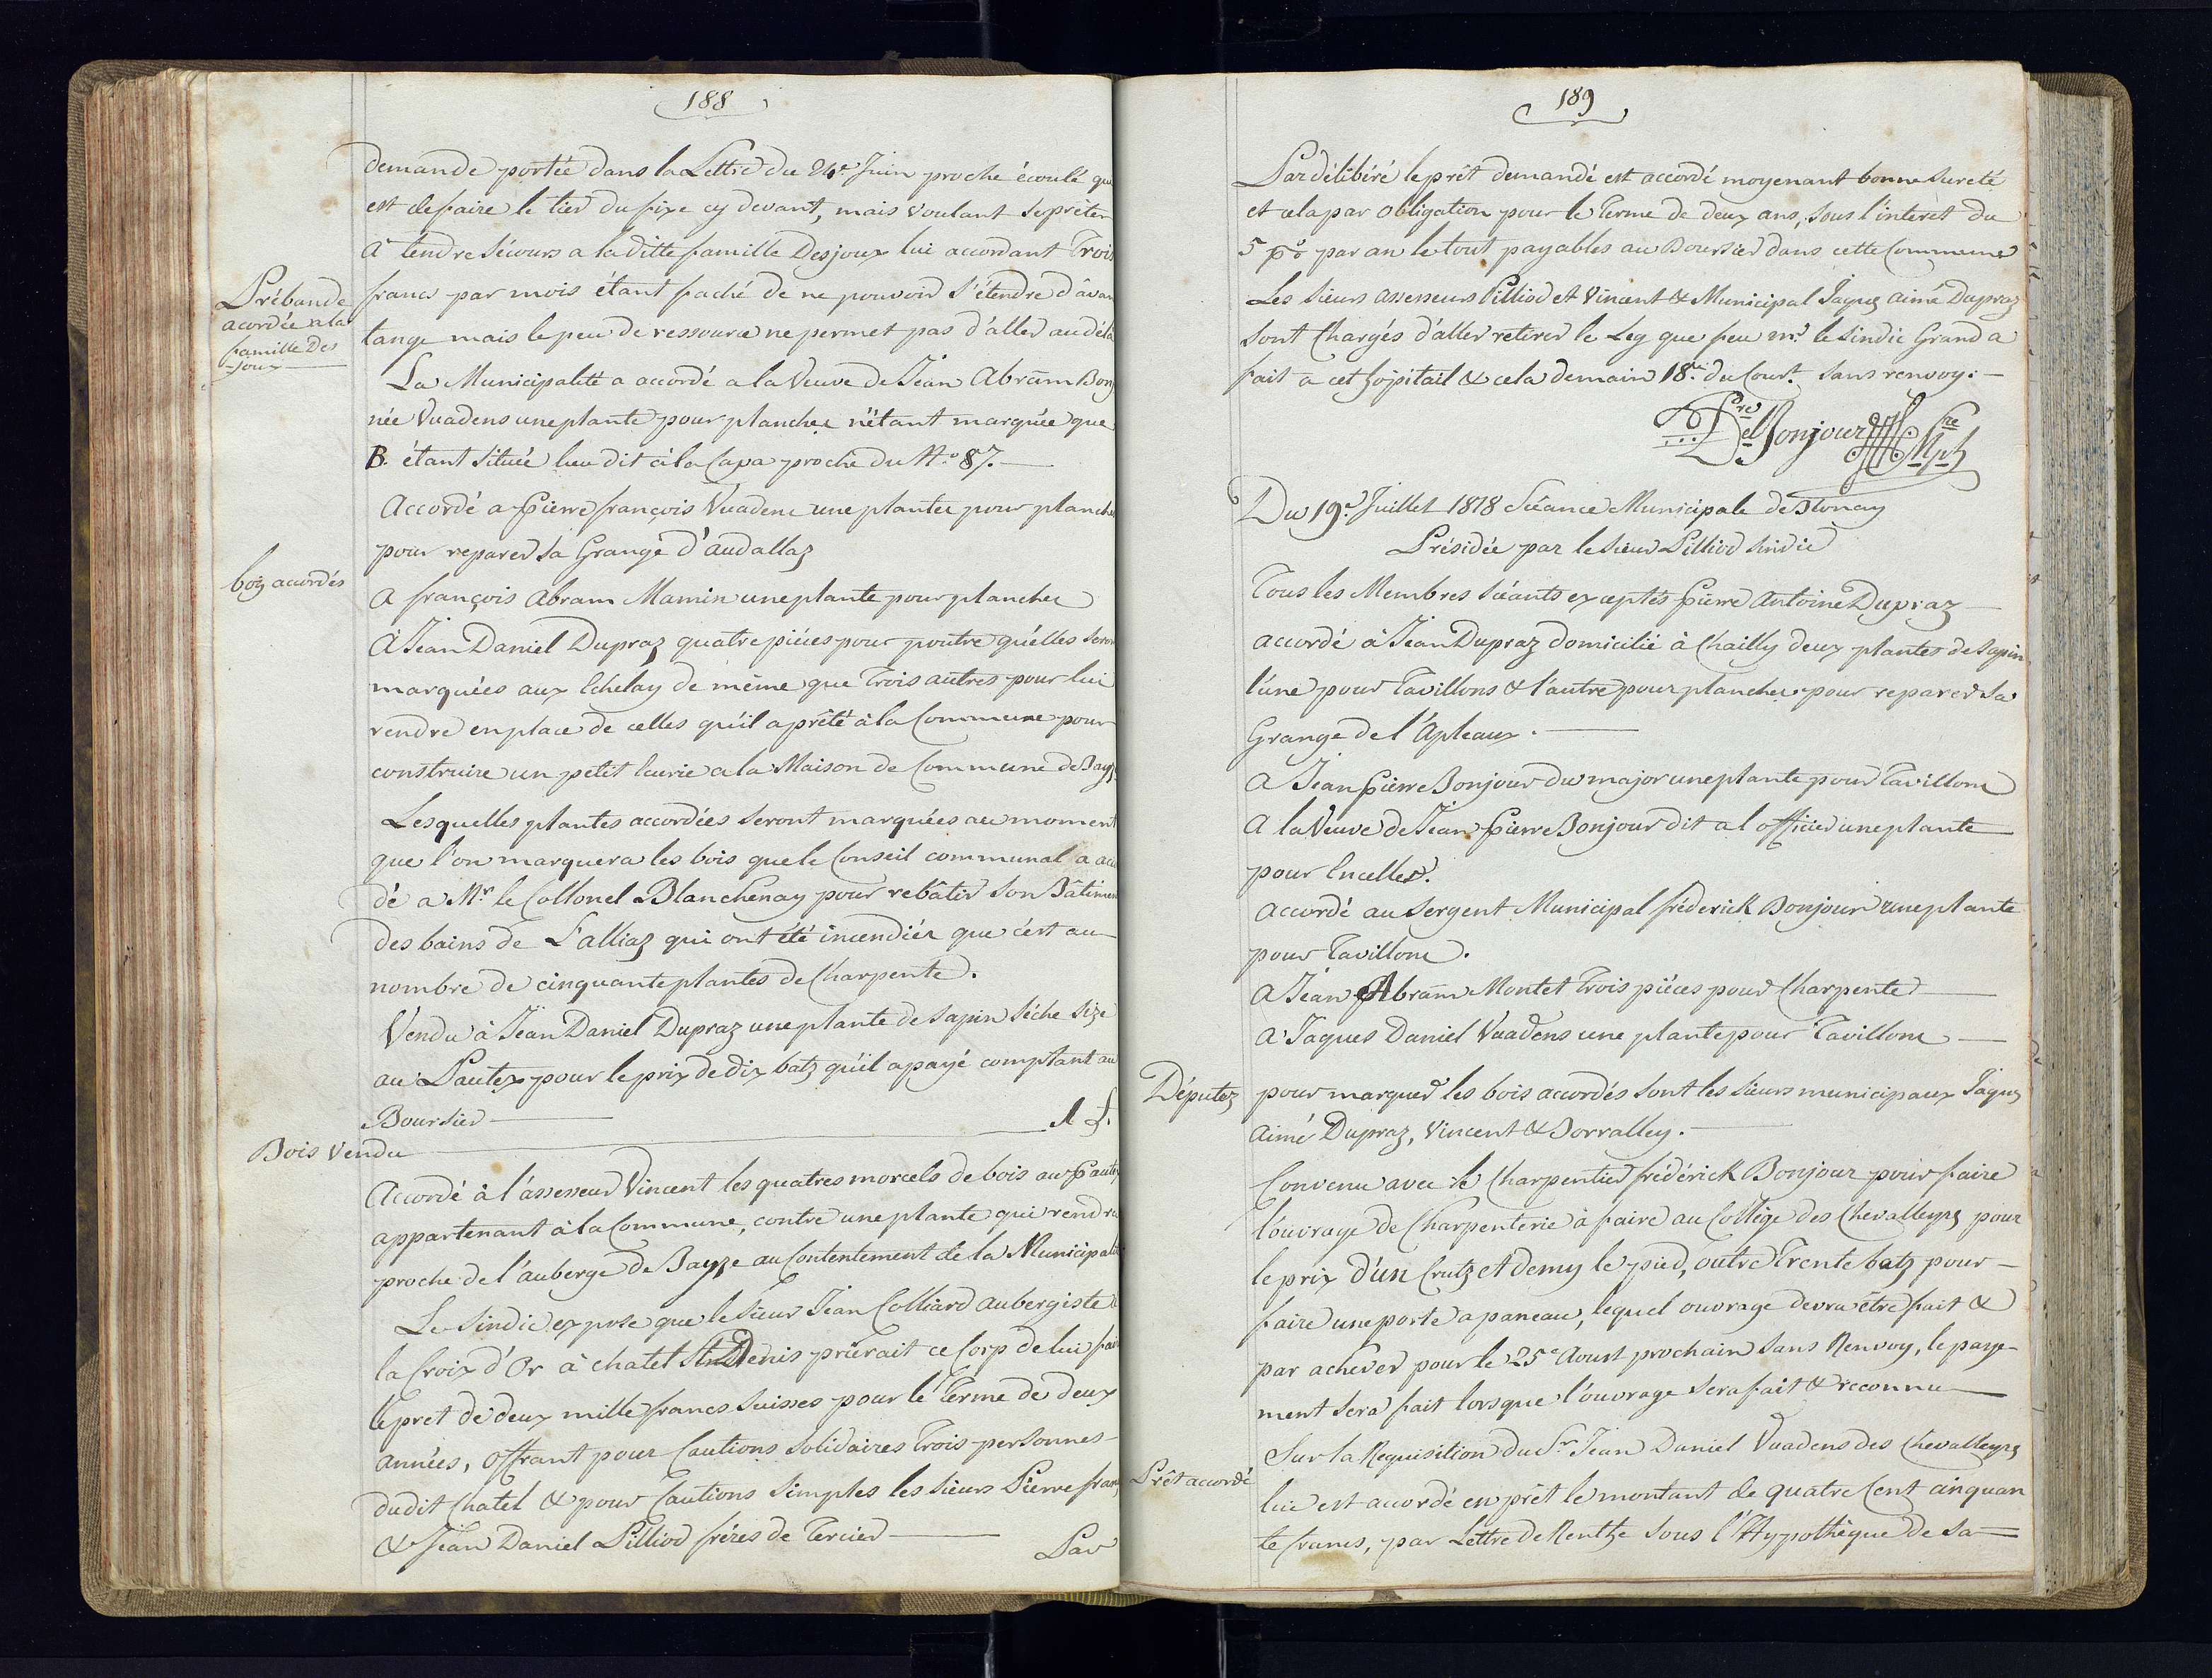 188
demande portée dans la Lettre du 24e Juin proche écoulé qui
est de faire le tier du fixe cy devant, mais voulant se prêter
a tendre sécours a la ditte famille Desjoux lui accordant Trois
Prébande
acordée a la
famille Des
-joux
francs par mois étant faché de ne pouvoir s'étendre d'avan
tange mais le peu de ressource ne permet pas d'aller au délà
La Municipalité a accordé a la Veuve de Jean Abram Bonj
née Vuadens une plante pour plancher n'étant marquée que
B. étant située lieu dit à la Capa proche du N.o 87.
Accordé a Pierre françois Vuadens une plantee pour planche
pour reparer sa Grange d'audallaz
bois accordés
A françois Abram Mamin une plante pour plancher
A Jean Daniel Dupraz quatre pièces pour poutre qu'elles seron
marquées aux Echelay de même que Trois autres pour lui
rendre en place de celles qu'il a prêté à la Commune pour
construire un petit Eurie a la Maison de Commune de Bayz
Lesquelles plantes accordées seront marquées au moment
que l'on marquera les bois que le Conseil communal a acc
dé a Mr le Collonel Blanchenay pour rebâtir son Bâtimen
des bains de L'alliaz qui ont été incendiés que c'est au
nombre de cinquante plantes de Charpente.
Vendu à Jean Daniel Dupraz une plante de sapin séche size
au Pautex pour le prix de dix batz qu'il a payé comptant au
Boursier 1 f.
Bois Vendu
Accordé à l'assesseur Vincent les quatres morcels de bois au Paute
appartenant à la Commune, contre une plante qui rendra
proche de l'auberge de Bayze au Contentement de la Municipali
Le Sindic expose que le Sieur Jean Colliard aubergiste
la Croix d'Or à chatel St Denis priérait ce Corp de lui fair
le pret de deux mille francs suisses pour le Terme de deux
années, offrant pour Cautions solidaires Trois personnes
dudit Chatel & pour Cautions simples les sieurs Pierre franç
& Jean Daniel Pilliod fréres de Tercier
Par
189
Par délibéré le prêt demandé est accordé moyenant bonne sureté
et cela par obligation pour le Terme de deux ans, sous l'intéret du
5 p% par an le tout payables au Boursier dans cette Commune
Les Sieurs assesseurs Pilliod et Vincent & Municipal Jaques Aimé Dupraz
sont Chargés d'aller retirer le Leg que feu mr le Sindic Grand a
fait a cet hopitail & cela demain 18e du Court sans renvoy.
Bonjour
Du 19e Juillet 1818 Séance Municipale de Blonay
Présidée par le Sieur Pilliod Sindic
Tous les Membres séants exceptés Pierre Antoine Dupraz
accordé à Jean Dupraz domicilié à Chailly deux plantes de sapin
l'une pour Tavillons & l'autre pour plancher pour reparer sa
Grange de l'Apleaux.
A Jean Pierre Bonjour du major une plante pour Tavillons
A la Veuve de Jean Pierre Bonjour dit a l officier une plante
pour Encelles.
accordé au Sergent Municipal fréderick Bonjour une plante
pour Tavillons.
A Jean Abram Montet Trois pièces pour Charpente
A Jaques Daniel Vuadens une plante pour Tavillons
Députez
pour marquer les bois accordés sont les sieurs municipaux Jaques
Aimé Dupraz, Vincent & Borralley.
Convenu avec le Charpentier frédérick Bonjour pour faire
l'ouvrage de Charpenterie à faire au Collége des Chevalleyrs pour
le prix d'un Crutz et demy le pied, outre Trente batz pour
faire une porte a paneau, lequel ouvrage devra être fait &
par achever pour le 25e Aoust prochain sans Renvoy, le paye-
ment sera fait lorsque l'ouvrage sera fait & reconnu
Sur la Requisition du Sr Jean Daniel Vuadens des Chevalleyrs
Prêt accordé
lui est accordé en prêt le montant de quatre Cent cinquan
te francs, par Lettre de Renthe sous l'Hypothèque de sa